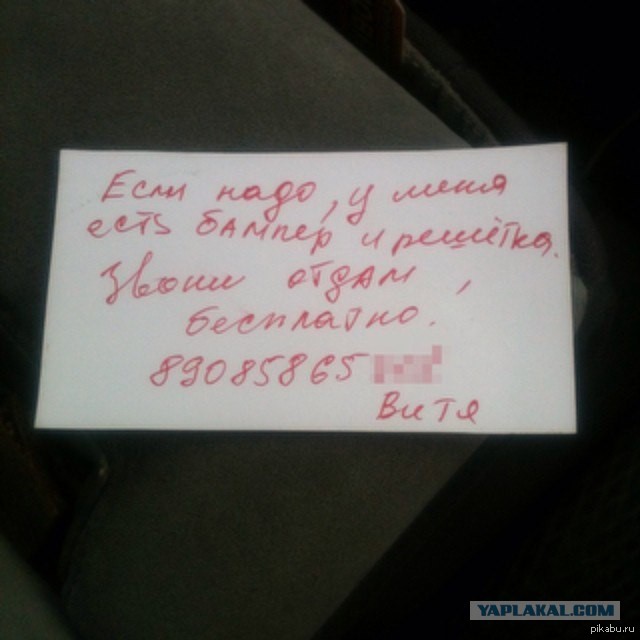 Если надо, у меня
есть бампер и решётка.
Звони отдам,
бесплатно.
89085865
Витя
YAPLAKAL.COM
pikabu.ru